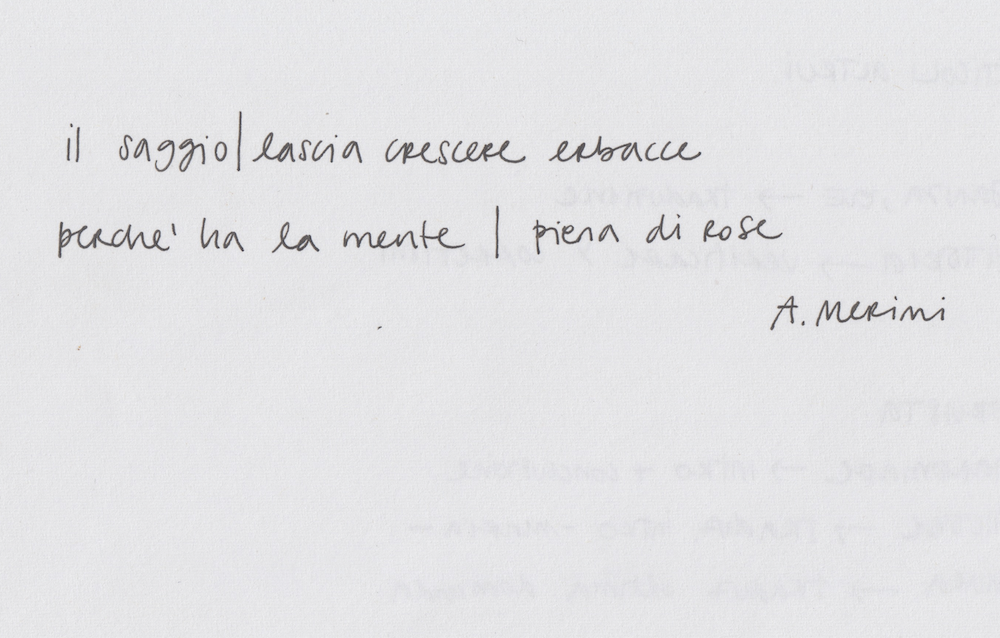 il saggio | lascia crescere erbacce
perche' ha la mente | piena di rose
A. Merini